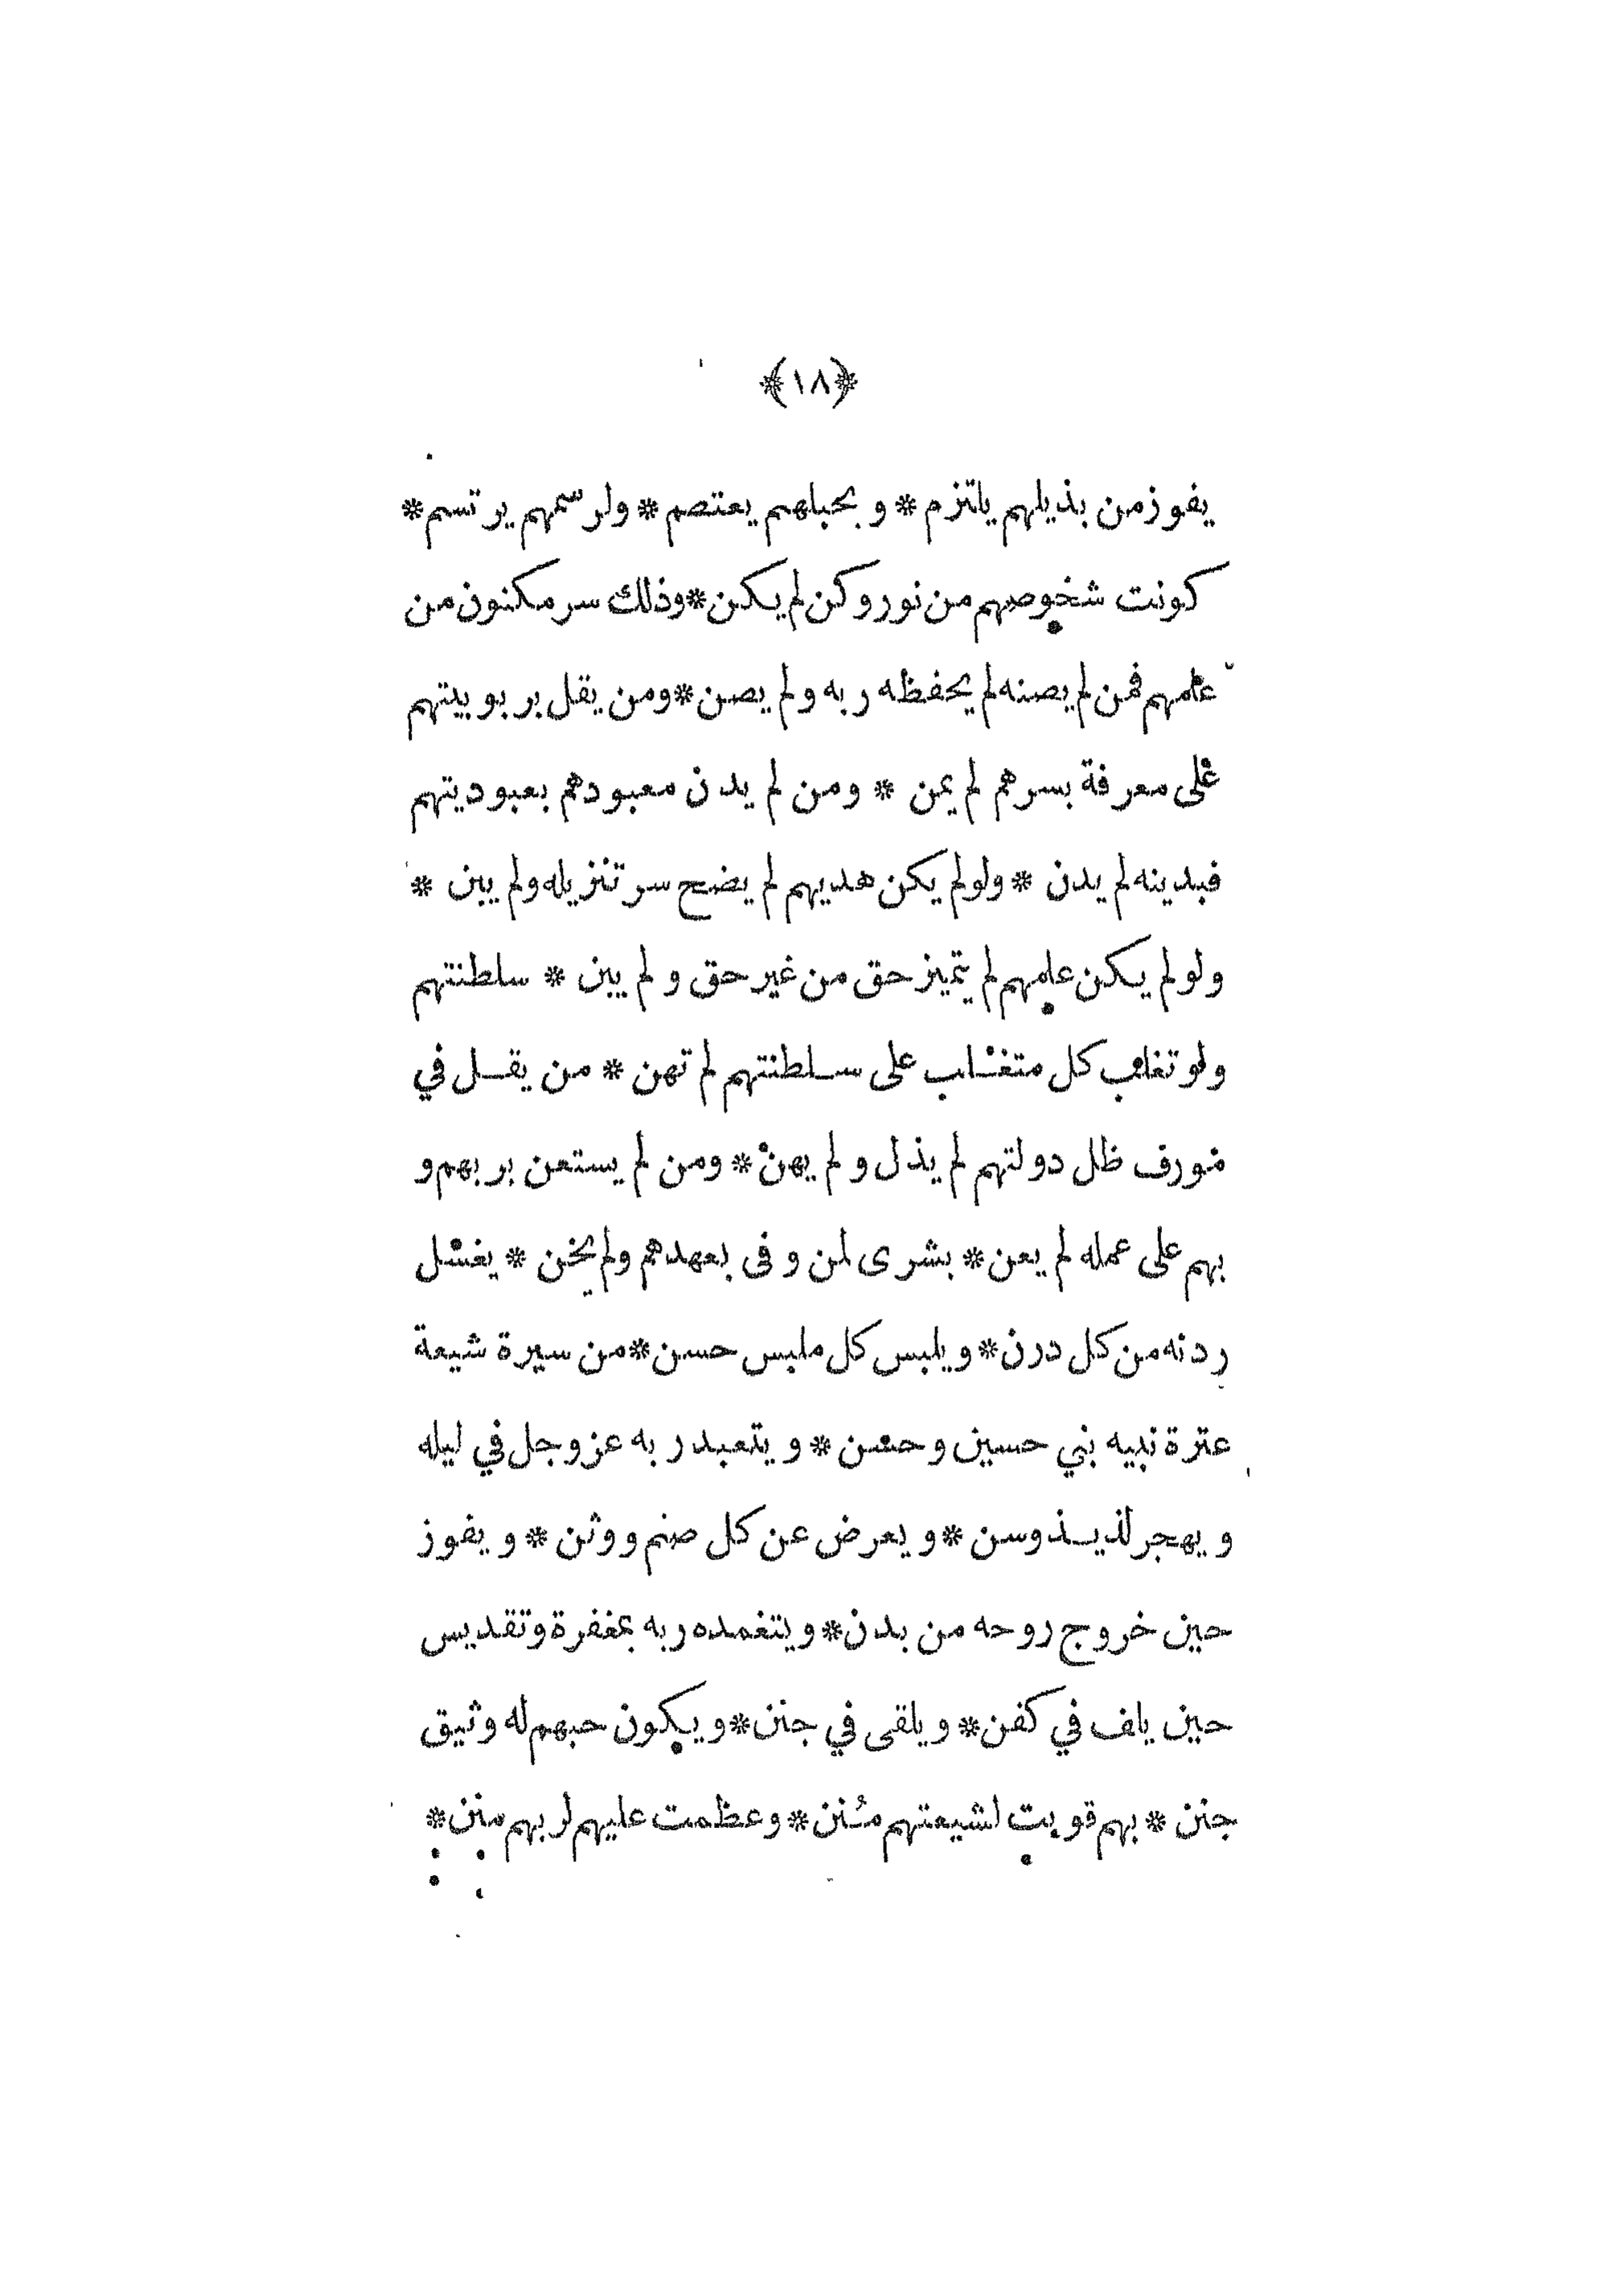 ﴿١٨﴾
يفوز من بذيلهم يلتزم * و بحبلهم يعتصم * ولرسمهم يرتسم *
كونت شخوصهم من نور وكن لم يكن * وذلك سر مكنون من
علمهم فمن لم يصنه لم يحفظه ربه ولم يصن * ومن يقل بربوبيتهم
على معرفة بسرهم لم يمن * ومن لم يدن معبودهم بعبوديتهم
فبدينه لم يدن * ولو لم يكن هديهم لم يضح سر تنزيله ولم يبن *
ولو لم يكن علمهم لم يتميز حق من غير حق و لم يبن * سلطنتهم
ولو تغلب كل متغلب على سلطنتهم لم تهن * من يقل في
مورف ظل دولتهم لم يذل و لم يهن * ومن لم يستعن بربهم و
بهم على عمله لم يعن * بشرى لمن وفى بعهدهم ولم يخن * يغسل
ردنه من كل درن * ويلبس كل ملبس حسن * من سيرة شيعة
عترة نبيه بني حسين وحسن * و يتعبد ربه عز وجل في ليله
و يهجر لذيذ وسن * و يعرض عن كل صنم ووثن * و يفوز
حين خروج روحه من بدن * ويتغمده ربه بمغفرة وتقديس
حين يلف في كفن * ويلقى في جنن * ويكون حبهم له وثيق
جنن * بهم قويت لشيعتهم مُنن * وعظمت عليهم لربهم منن *